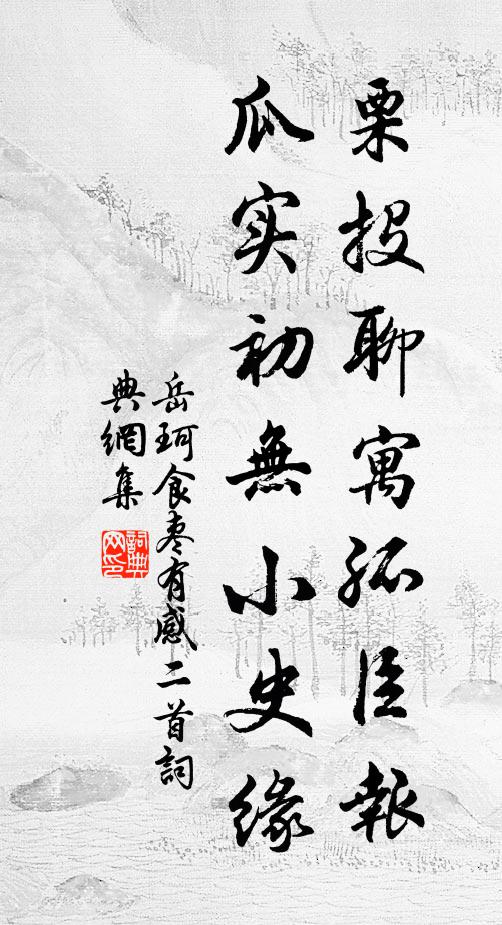 栗投聊寓孤臣報
瓜实初無小史緣
岳珂食枣有感二首詞
典網集
詞典网印